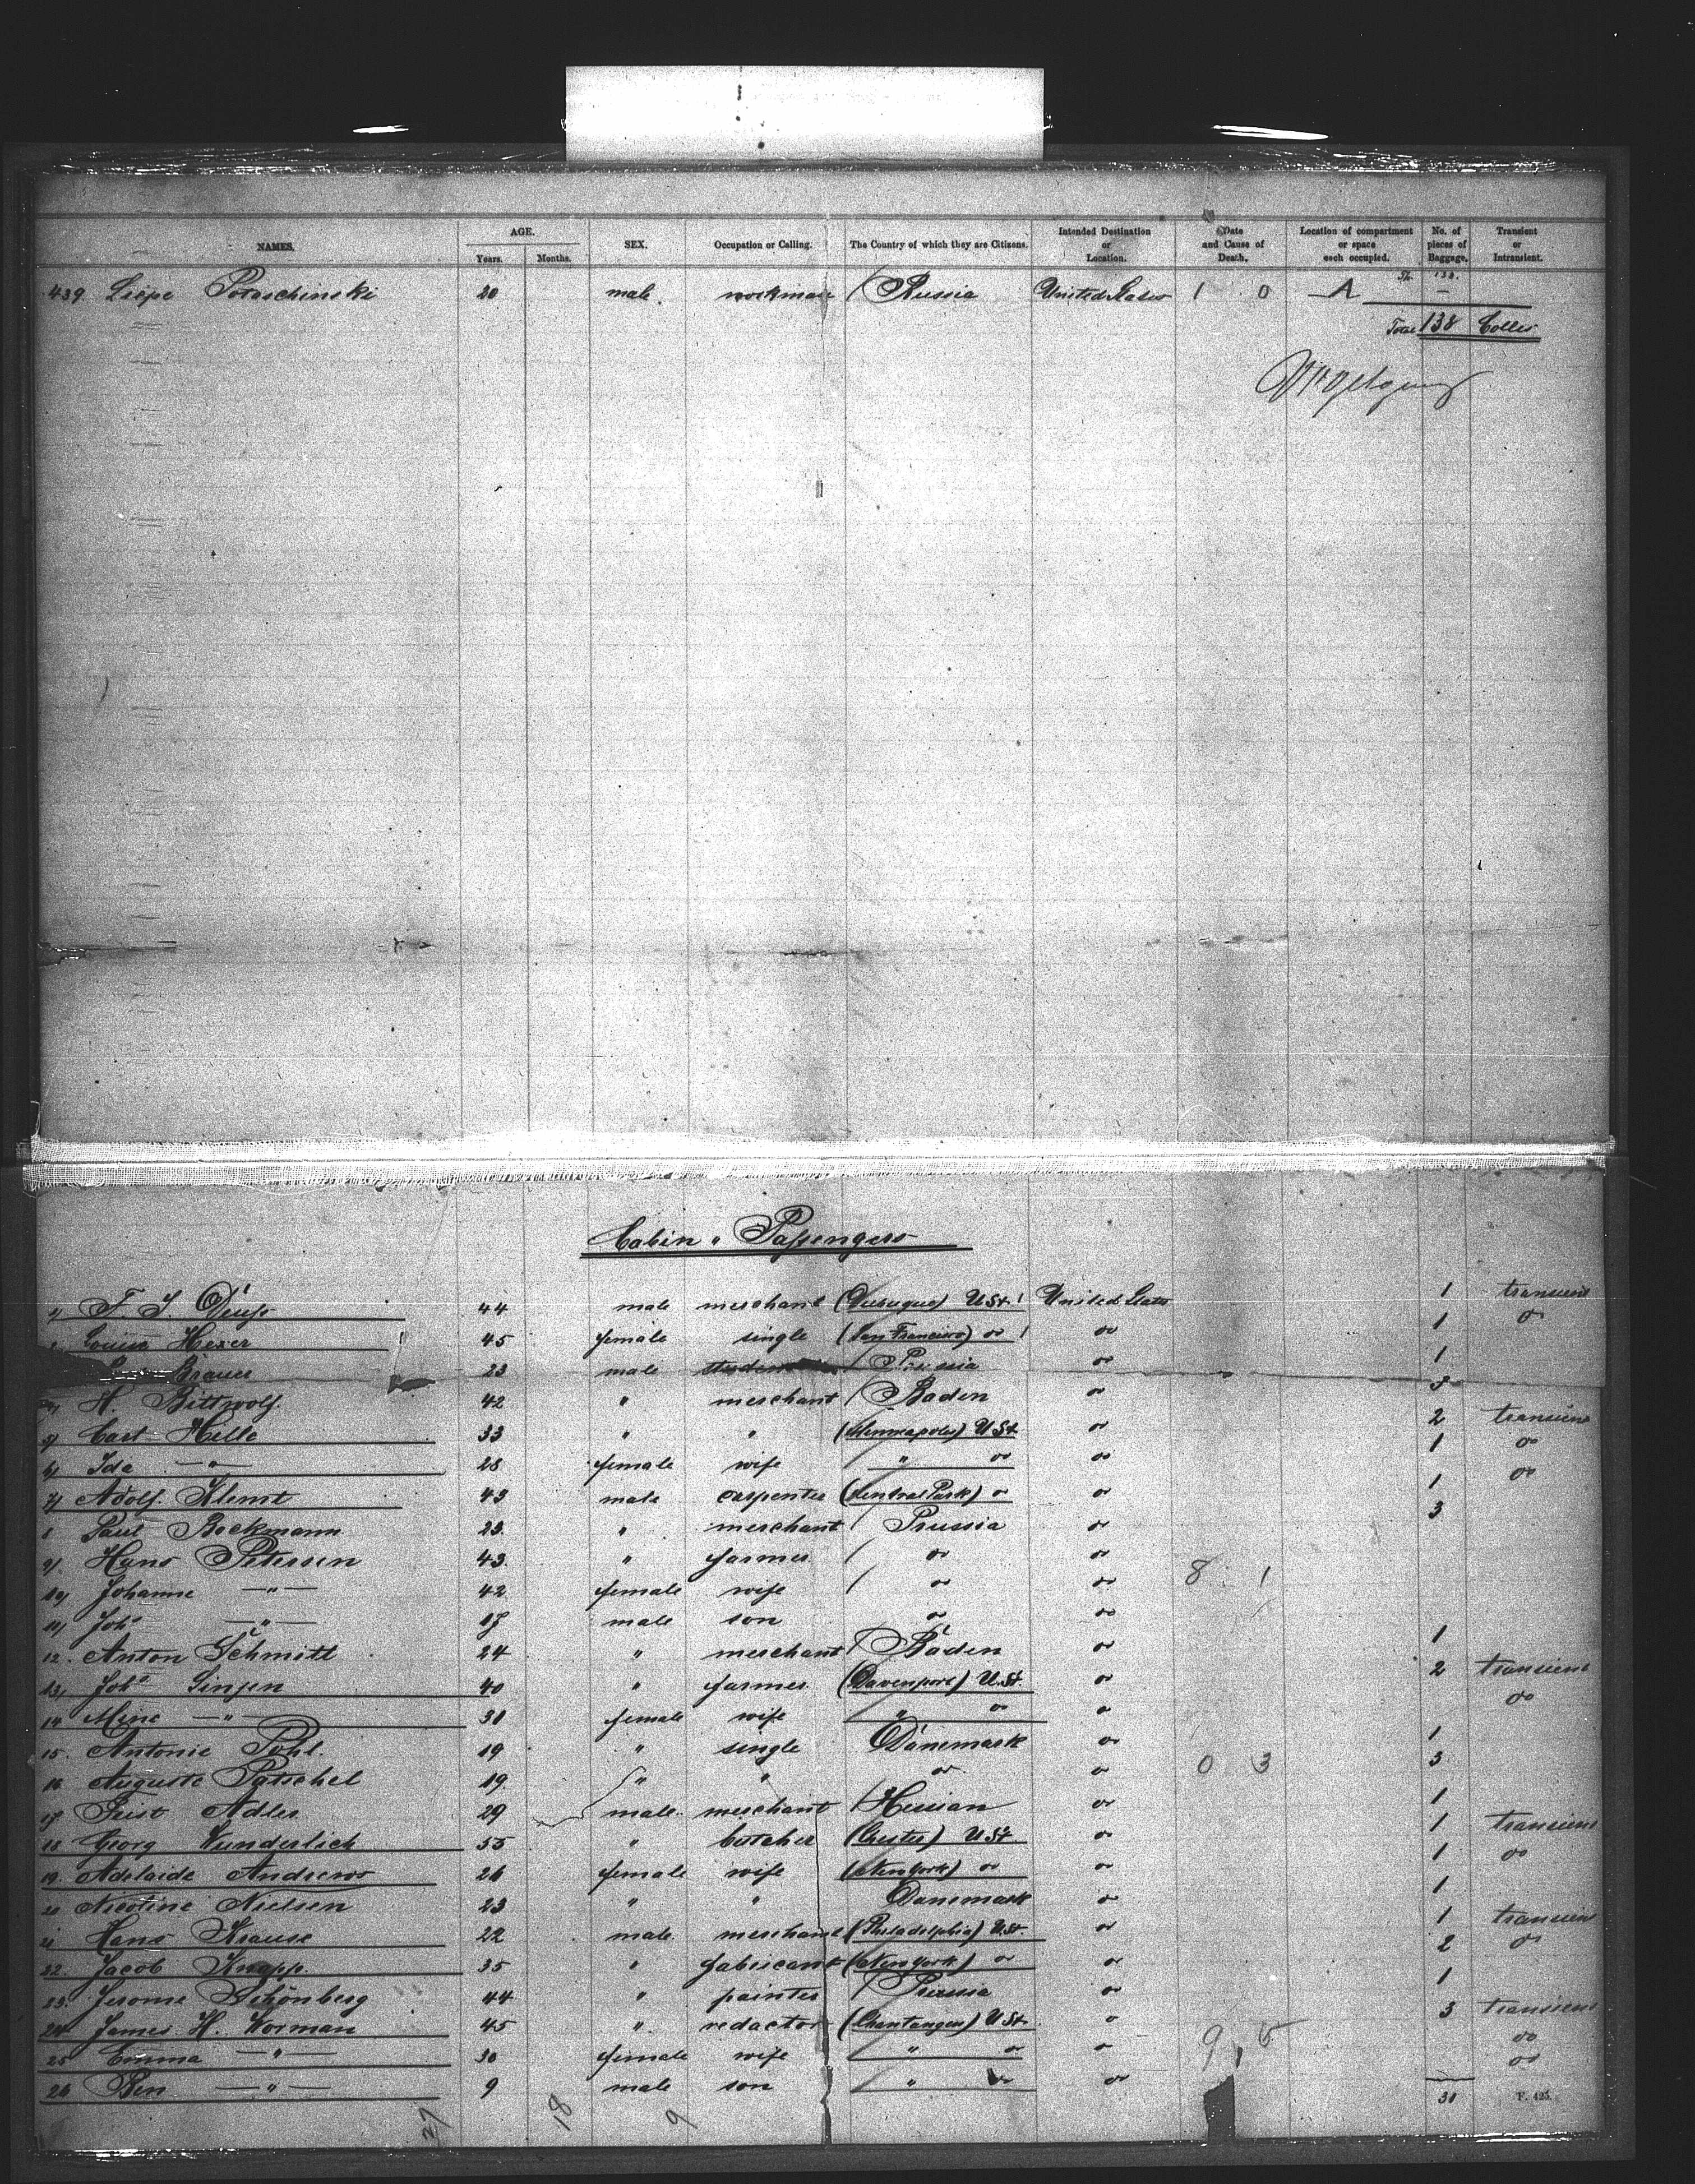 NAMES. AGE. Years. Months. SEX. Occupation or Calling. The Country of which they are Citizens. Intended Destination or Location. Date and Cause of Death. Location of compartment or space each occupied. No. of pieces of Baggage. Transient or Intransient.
Tr. 138.
439. Liepe Potaschinski 20 male workman Russia United States 1 0 A —
Total 138 Colles
Cabin " Passengers
1) F. J. Deuss 44 male merchant (Dubuque) U St. 1 United States 1 transient
Louise Hexer 45 female single (San Francisco) do 1 do 1 do
Brauer 23 male Prussia do 1
H. Bittwolf 42 " merchant Baden do
5) Carl Hille 33 " " (Minneapolis) U St do 2 transient
6) Ida —"— 28 female wife " do do 1 do
7) Adolf Klemt 43 male carpenter (Central Park) do do 1 do
8 Paul Bockmann 23. " merchant Prussia do 3
9) Hans Petersen 43. " farmer do do
10) Johanne —"— 42 female wife do do 8 1
11) Joh —"— 17 male son do do
12. Anton Schmitt 24 " merchant Baden do 1
13) Joh Sinjen 40 " farmer (Davenport) U. St. do 2 transient
14 Mine —"— 31 female wife " do do do
15. Antonie Pohl. 19 " single Danemark do 1
16 Auguste Patschel 19. " " do do 0 3 3
17 Feist Adler 29 male. merchant Hessian do 1
18 Georg Wunderlich 55 " butcher (Chester) U St do 1 transient
19. Adelaide Andrews 26 female wife (New York) do do 1 do
20 Nicoline Nielsen 23 " " Danemark do 1
21 Hans Krause 22 male. merchant (Philadelphia) U. St. do 1 transient
22. Jacob Knapp. 35 " fabricant (New York) do do 2 do
23. Jerome Schönberg 44 " painter Prussia do 1
24 James H. Worman 45 " redactor (Chautauqua) U St do 3 transient
25 Emma —"— 30 female wife " do do 9, 5 do
26 Ben —"— 9 male son " do do do
31 F. 425.
27 18 9